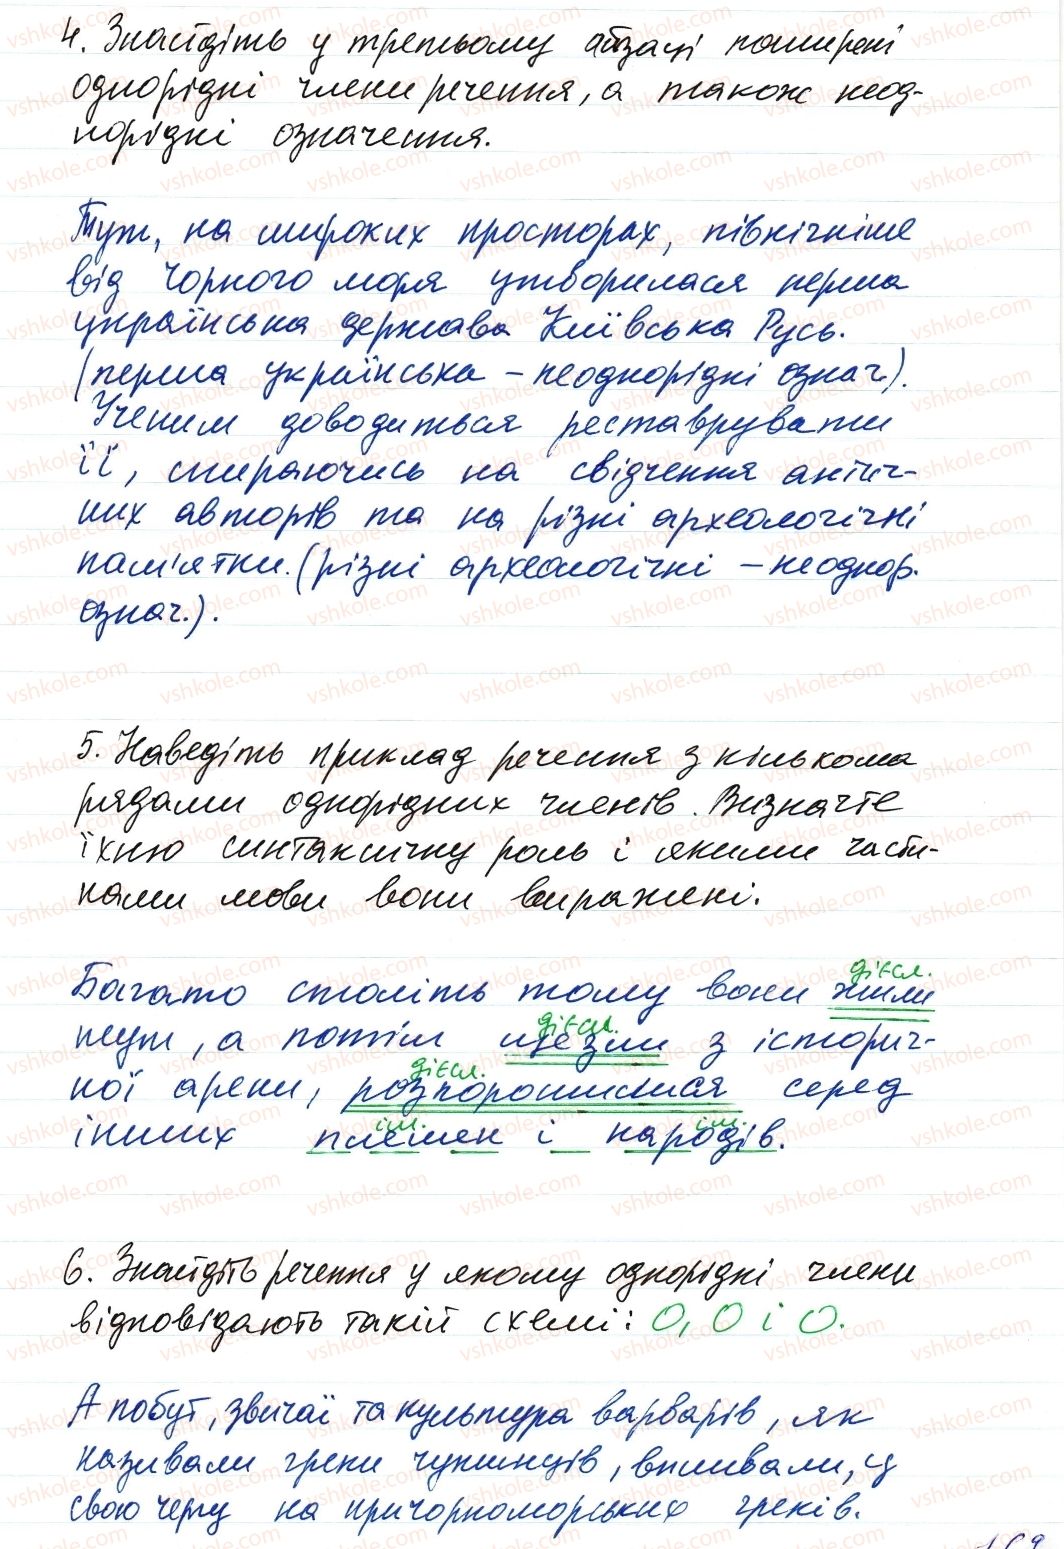 4. Знайдіть у третьому абзаці поширені
однорідні члени речення, а також неод-
норідні означення.
Тут, на широких просторах, північніше
від Чорного моря утворилася перша
українська держава Київська Русь.
(перша українська – неоднорідні означ.).
Ученим доводиться реставрувати
її, спираючись на свідчення антич-
них авторів та на різні археологічні
пам'ятки. (різні археологічні – неоднор.
означ.).
5. Наведіть приклад речення з кількома
рядами однорідних членів. Визначте
їхню синтаксичну роль і якими части-
нами мови вони виражені.
дієсл.
Багато століть тому вони жили
дієсл.
тут, а потім щезли з історич-
дієсл.
ної арени, розпорошилися серед
ім. ім.
інших племен і народів.
6. Знайдіть речення у якому однорідні члени
відповідають такій схемі: О, О і О.
А побут, звичаї та культура варварів, як
називали греки чужинців, впливали, у
свою чергу на причорноморських греків.